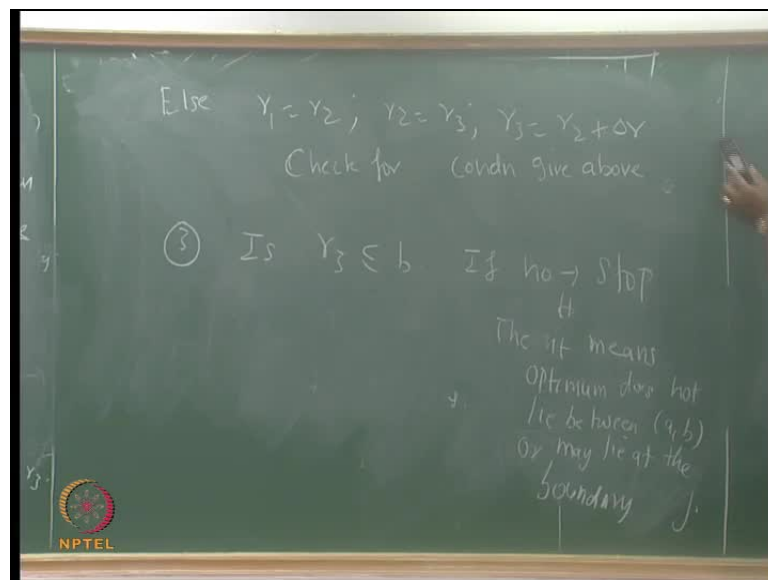 Else γ₁ = γ₂ ; γ₂ = γ₃ ; γ₃ = γ₂ + Δγ
Check for condn give above
③ Is γ₃ ≤ b If no → Stop
The it means
optimum does not
lie between (a, b)
or may lie at the
boundary
γ₃.
NPTEL